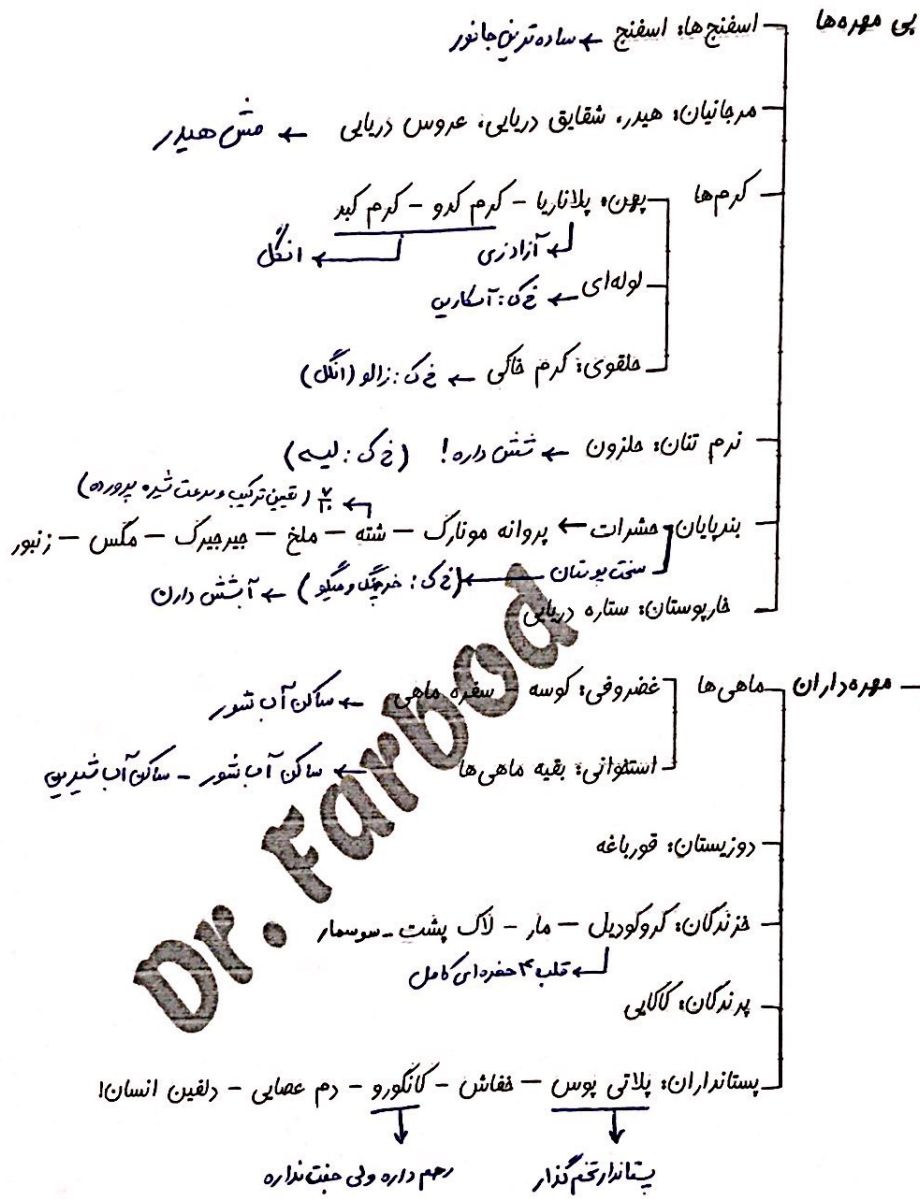 بی مهره‌ها
اسفنج‌ها: اسفنج ← ساده‌ترین جانور
مرجانیان: هیدر، شقایق دریایی، عروس دریایی ← مش هیدر
کرم‌ها
پهن: پلاناریا - کرم کدو - کرم کبد
آزادزی ← انگل
لوله‌ای ← خ ک: آسکاریس
حلقوی: کرم خاکی ← خ ک: زالو (انگل)
نرم تنان: حلزون ← شش داره! (خ ک: لیسه)
(تعیین ترکیب و سرعت شیره پرورده)
بندپایان
حشرات ← پروانه مونارک - شته - ملخ - جیرجیرک - مگس - زنبور
سخت پوستان ← (خ ک: خرچنگ و میگو) ← آبشش دارن
خارپوستان: ستاره دریایی
مهره‌داران
ماهی‌ها
غضروفی: کوسه - سفره ماهی ← ساکن آب شور
استخوانی: بقیه ماهی‌ها ← ساکن آب شور - ساکن آب شیرین
دوزیستان: قورباغه
خزندگان: کروکودیل - مار - لاک پشت - سوسمار
← قلب ۴ حفره‌ای کامل
پرندگان: کاکایی
پستانداران: پلاتی پوس - خفاش - کانگورو - دم عصایی - دلفین انسان!
پستاندار تخم گذار
رحم داره ولی جفت نداره
Dr. Farbod